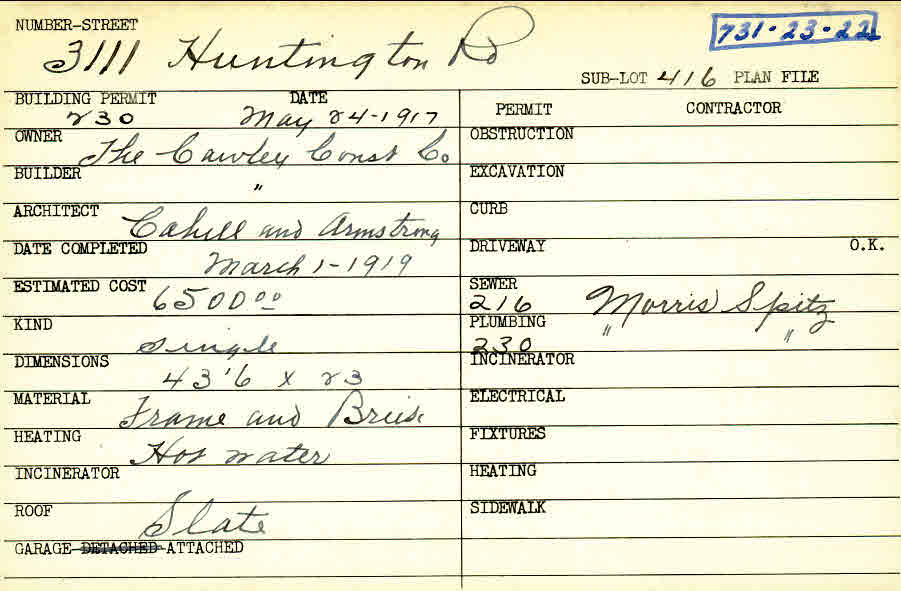 NUMBER-STREET
731-23-22
3111 Huntington Rd
SUB-LOT 416 PLAN FILE
BUILDING PERMIT DATE
230 May 24-1917
PERMIT CONTRACTOR
OWNER The Cawley Const Co
OBSTRUCTION
BUILDER "
EXCAVATION
ARCHITECT Cahill and Armstrong
CURB
DATE COMPLETED
March 1-1919
DRIVEWAY O.K.
ESTIMATED COST 6500.00
SEWER
216 Morris Spitz
KIND
single
PLUMBING " "
230
DIMENSIONS
43'6 x 23
INCINERATOR
MATERIAL Frame and Brick
ELECTRICAL
HEATING Hot water
FIXTURES
INCINERATOR
HEATING
ROOF Slate
SIDEWALK
GARAGE-DETACHED-ATTACHED